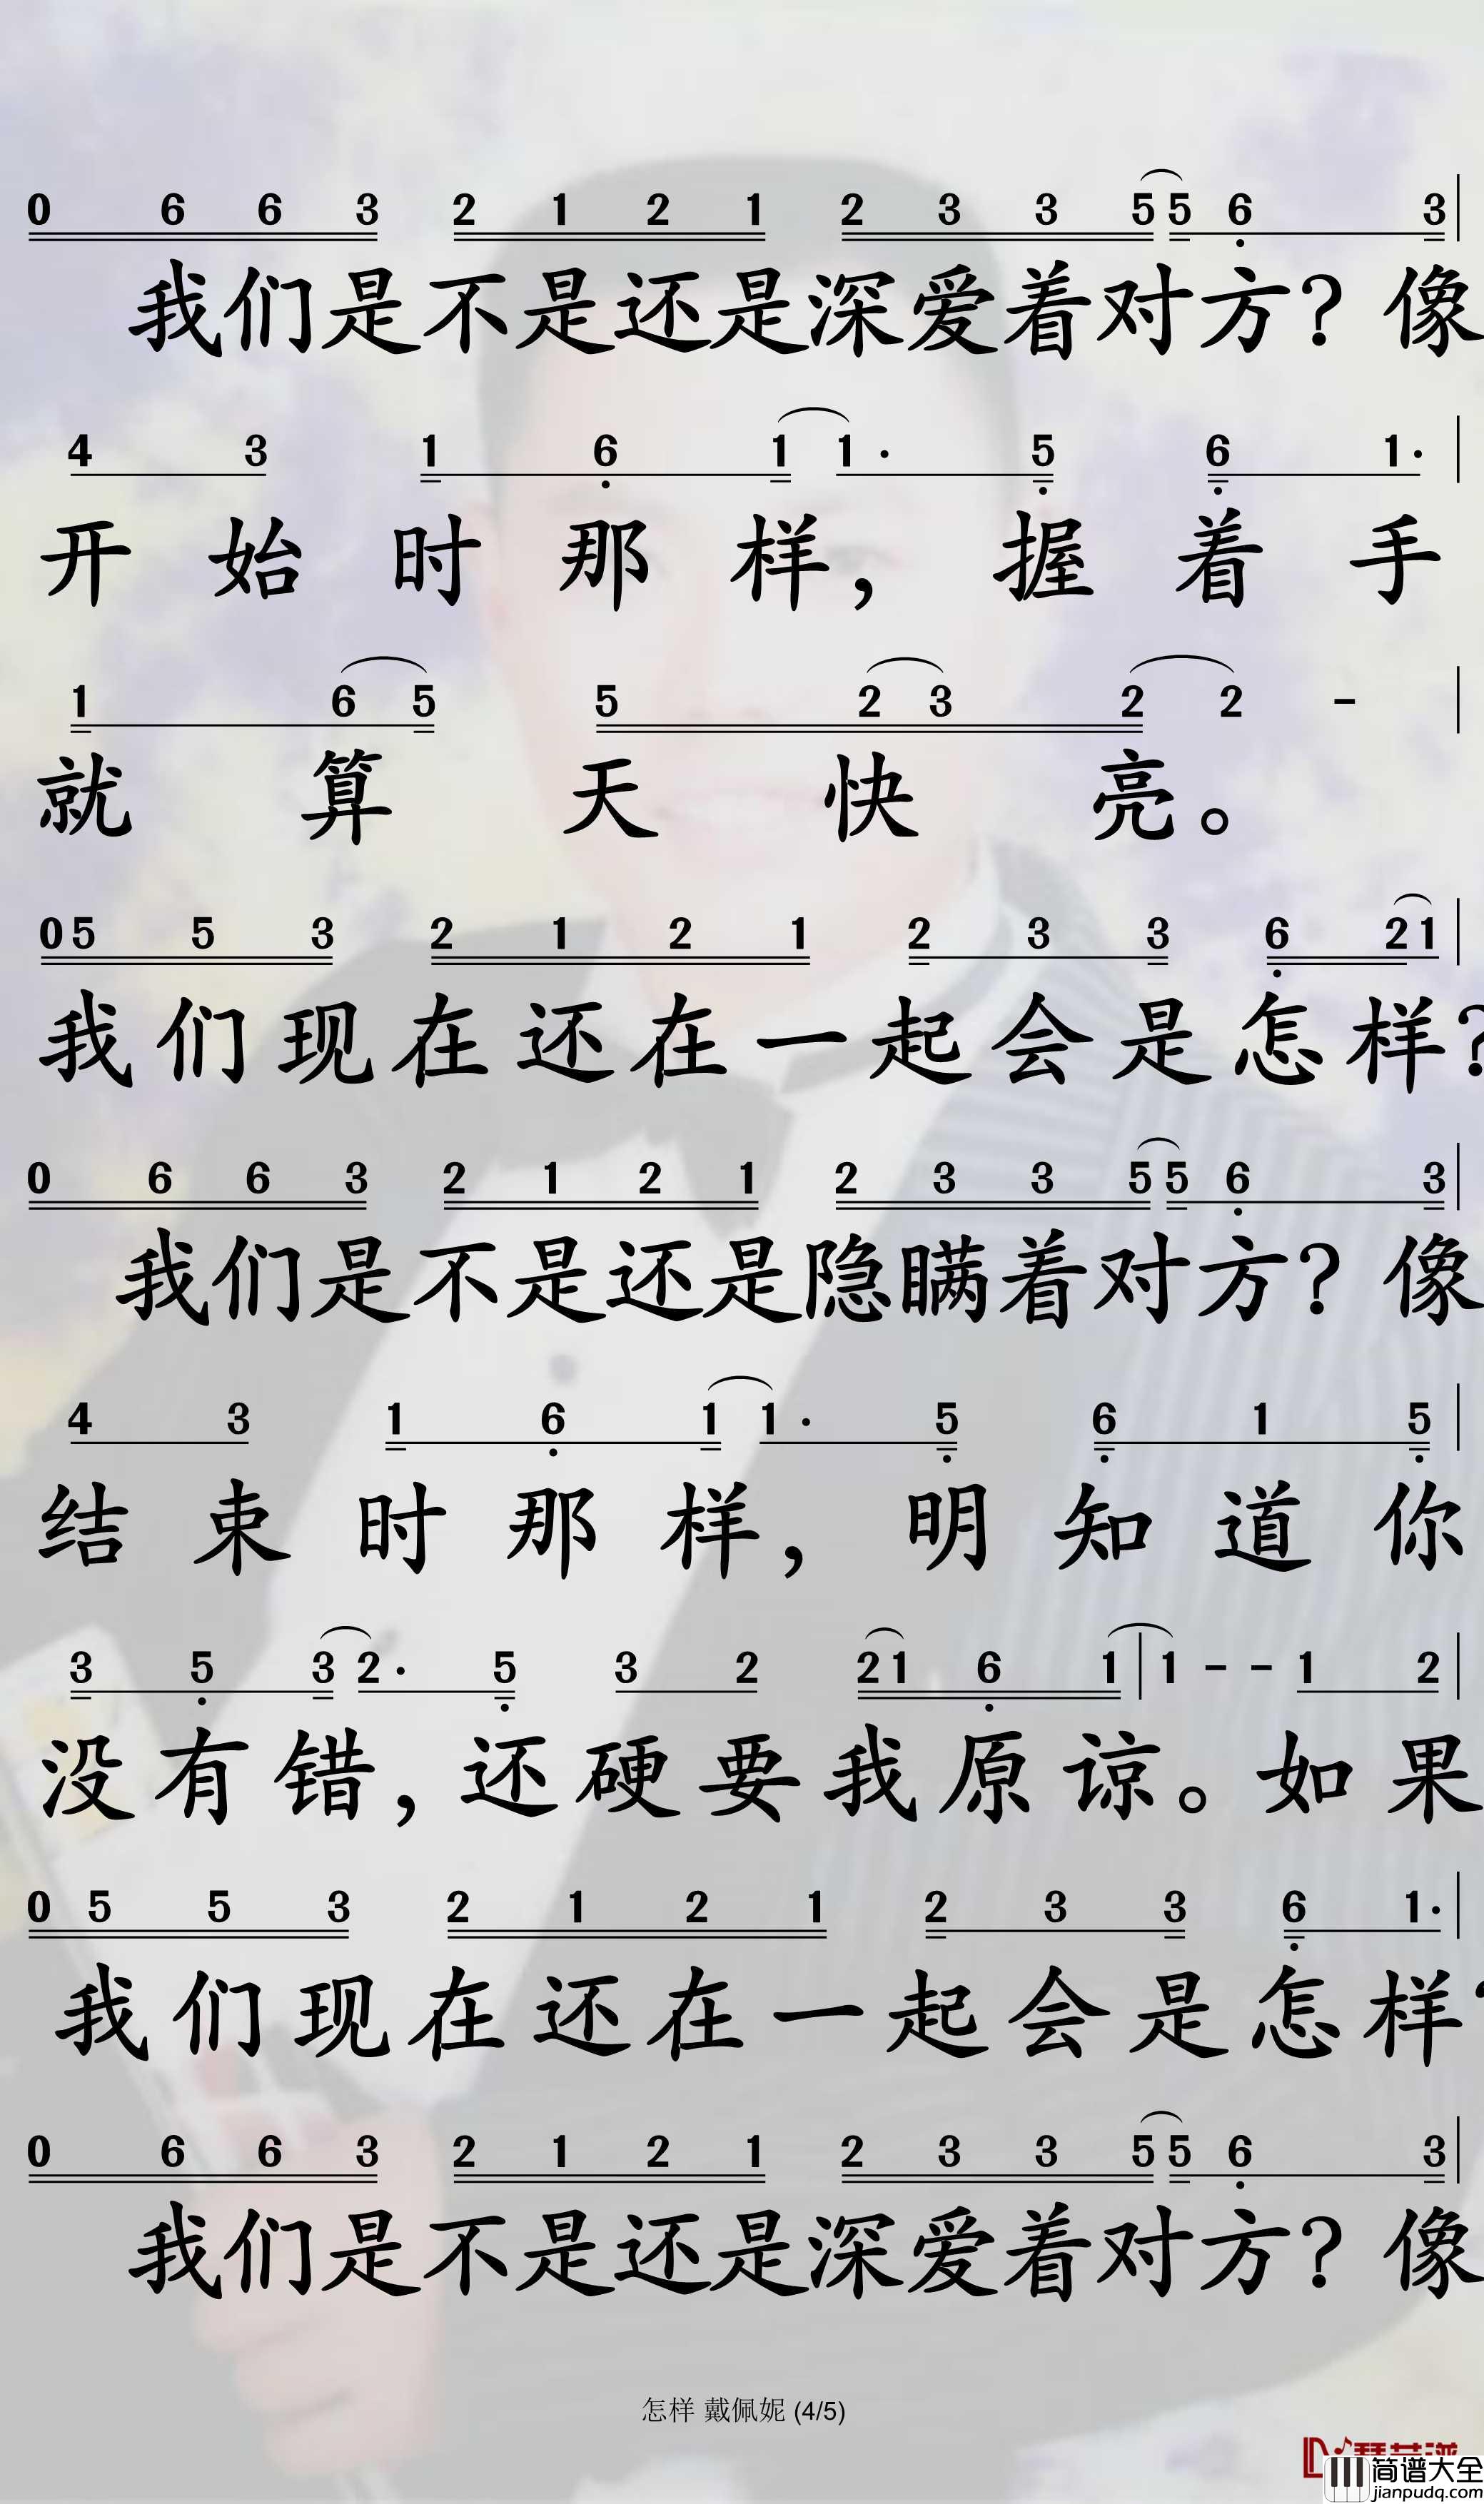 0 6 6 3 2 1 2 1 2 3 3 5 5 6 3
我们是不是还是深爱着对方？像
4 3 1 6 1 1· 5 6 1·
开始时那样，握着手
1 6 5 5 2 3 2 2 -
就算天快亮。
0 5 5 3 2 1 2 1 2 3 3 6 2 1
我们现在还在一起会是怎样？
0 6 6 3 2 1 2 1 2 3 3 5 5 6 3
我们是不是还是隐瞒着对方？像
4 3 1 6 1 1· 5 6 1 5
结束时那样，明知道你
3 5 3 2· 5 3 2 2 1 6 1 | 1 - - 1 2
没有错，还硬要我原谅。如果
0 5 5 3 2 1 2 1 2 3 3 6 1·
我们现在还在一起会是怎样？
0 6 6 3 2 1 2 1 2 3 3 5 5 6 3
我们是不是还是深爱着对方？像
怎样 戴佩妮 (4/5)
简谱大全
jianpudq.com